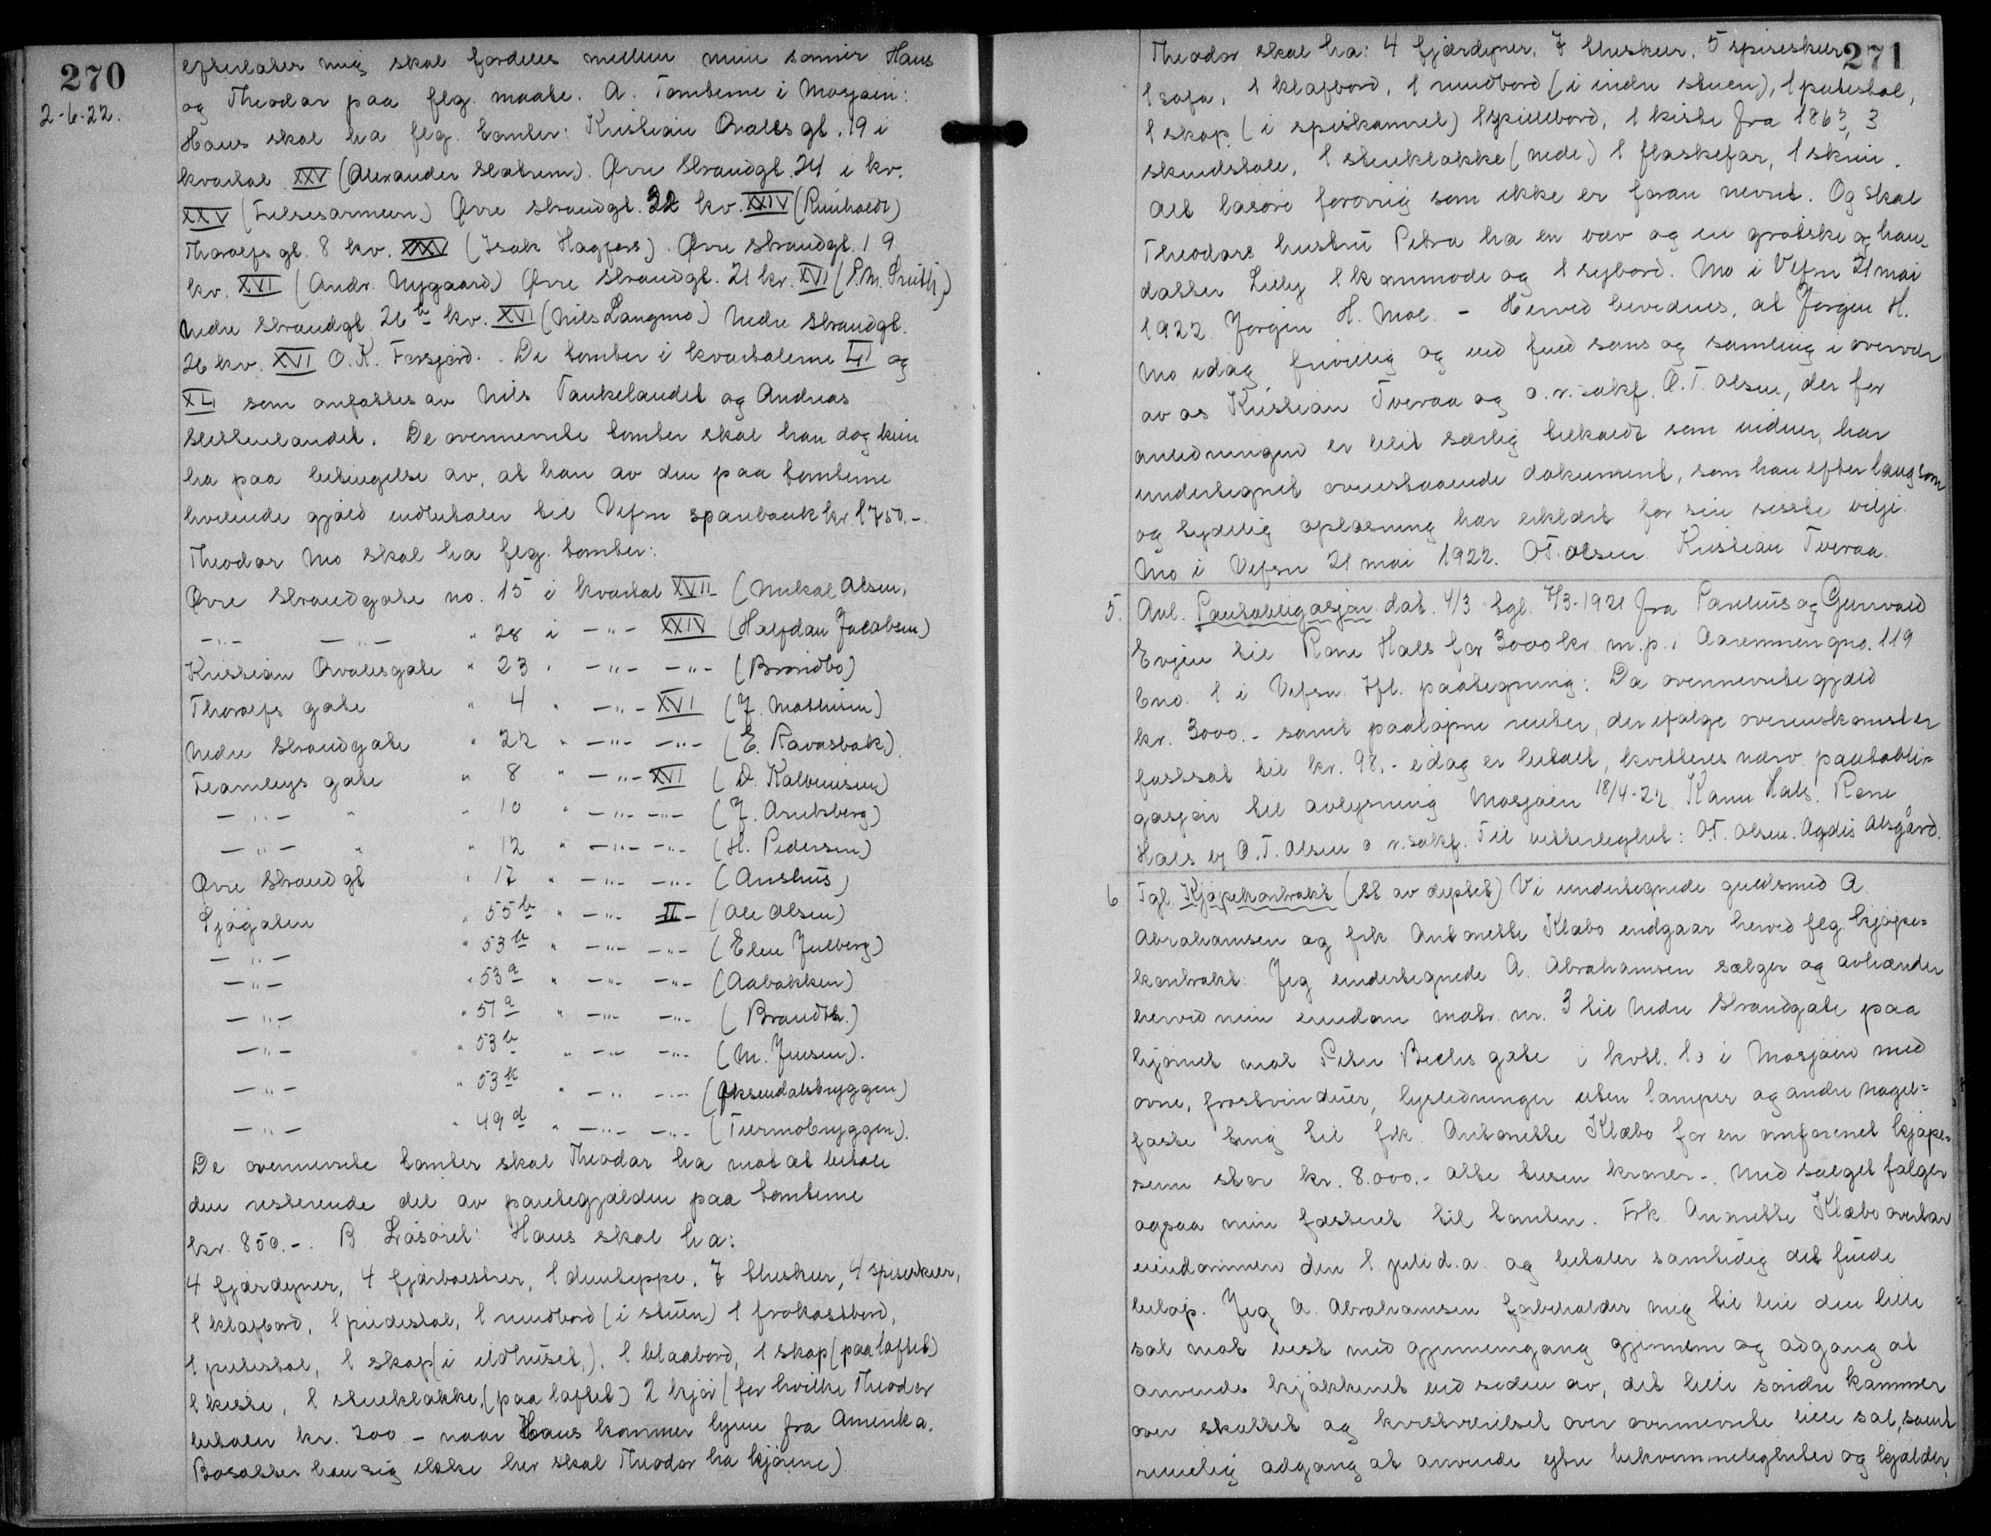 270
2-6-22.
efterlater mig skal fordeles mellem mine sønner Hans
og Theodor paa flg. maate. A. Tomterne i Mosjøen:
Hans skal ha flg. tomter: Kristian Qvalesgt. 19 i
kvartal XXV (Alexander Slatrem). Øvre Strandgt. 24 i kv.
XXV (Frelsesarmeen) Øvre Strandgt. 22 kv. XXIV (Reinholdt)
Thorolfsgt. 8 kv. XXV (Isak Hagfors). Øvre Strandgt. 19
kv. XVI (Andr. Nygaard) Øvre Strandgt. 21 kv. XVI (P.M. Smith)
Nedre Strandgt. 26 b kv. XVI (Nils Langmo) Nedre Strandgt.
26 kv. XVI O. K. Forsjord. De tomter i kvartalerne LI og
XLI som opfattes av Nils Tankelandet og Andreas
Slettenlandet. De ovennevnte tomter skal han dog kun
ha paa betingelse av, at han av den paa tomterne
hvilende gjæld indbetaler til Vefsn sparebank kr. 1750.-
Theodor Mo skal ha flg. tomter:
Øvre Strandgate no. 15 i kvartal XVII (Mikal Olsen,
—"— —"— " 28 i —"— XXIV (Halfdan Jacobsen)
Kristian Qvalesgate " 23 " —"— —"— (Brandbo)
Thorolfs gate " 4 " —"— XVI (J. Mathisen)
Nedre Strandgate " 22 " —"— —"— (E. Ravasbak)
Teamleys gate " 8 " —"— XVI (D. Kalvemisen)
—"— " 10 " —"— —"— (J. Arntsberg)
—"— " 12 " —"— —"— (H. Pedersen)
Øvre Strandgt " 17 " —"— —"— (Aushus)
Sjøgaten " 55 b " —"— II (Ole Olsen)
—"— " 53 b " —"— —"— (Eline Julberg)
—"— " 53 a " —"— —"— (Aabakken)
—"— " 51 a " —"— —"— (Brandth.)
—"— " 53 b " —"— —"— (M. Jensen).
—"— " 53 c " —"— —"— (Øksendalsbryggen)
—"— " 49 d " —"— —"— (Tiermobryggen).
De ovennevnte tomter skal Theodor ha mot at betale
den resterende del av pantegjælden paa tomterne
kr. 850.-. B Løsøret: Hans skal ha:
4 fjærdyner, 4 fjærbolstrer, 1 dunteppe, 7 theskeer, 4 spiseskeer,
1 klafbord, 1 piedestal, 1 rundbord (i stuen) 1 frokostbord,
1 putestol, 1 skap (i ildhuset,), 1 blaabord, 1 skap (paa loftet)
1 kiste, 1 stueklokke, (paa loftet) 2 kjør (for hvilke Theodor
betaler kr. 200 - naar Hans kommer hjem fra Amerika.
Bosætter han sig ikke her skal Theodor ha kjørene)
271
Theodor skal ha: 4 fjærdyner, 7 theskeer, 5 spiseskeer
1 sofa, 1 klafbord, 1 rundbord (i indre stuen), 1 putestol,
1 skap (i spiskamret) 1 spillebord, 1 kiste fra 1863, 3
skindstole, 1 stueklokke (nede) 1 flaskefor, 1 skrin.
Alt løsøre forøvrig som ikke er foran nevnt. Og skal
Theodors hustru Petra ha en væv og en grøtske og hans
datter Lilly 1 kommode og 1 sybord. Mo i Vefsn 21 mai
1922 Jørgen H. Moe. - Herved bevidnes, at Jørgen H.
Mo idag frivillig og ved fuld sans og samling i overvær
av os Kristian Tveraa og o.r.sakf. O. T. Olsen, der for
anledningen er blit særlig tilkaldt som vidner, har
undertegnet ovenstaaende dokument, som han efter langsom
og tydelig oplæsning har erklært for sin sidste vilje.
Mo i Vefsn 21 mai 1922. OT. Olsen Kristian Tveraa.
5. Avl. Panteobligasjon dat. 4/3 tgl. 7/3-1921 fra Paulius og Gunvald
Evjen til Rone Hals for 3000 kr. m.p. i Aaremmen gno. 119
bno. 1 i Vefsn. Ifl. paategning: Da ovennevnte gjæld
kr. 3000.- samt paaløpne renter, der ifølge overenskomst er
fastsat til kr. 98.- idag er betalt, kvitteres nærv. panteobli=
gasjon til avlysning Mosjøen 18/4-22. Kanu Hals. Rone
Hals ef. O. T. Olsen o.r.sakf. Til vitterlighet: OT. Olsen. Agdis Alsgård.
6 Tgl. Kjøpekontrakt (st av deptet) Vi undertegnede guldsmed A.
Abrahamsen og frk Antonette Klæbo indgaar herved flg. kjøpe=
kontrakt: Jeg undertegnede A. Abrahamsen sælger og avhænder
herved min eiendom matr. nr. 3 til Nedre Strandgate paa
hjørnet mot Peter Bechs gate i kvtl. 10 i Mosjøen med
ovne, frostvinduer, lysledninger uten lamper og andre nagel=
faste ting til frk. Antonette Klæbo for en omforenet kjøpe=
sum stor kr. 8.000.- otte tusen kroner-. Med salget følger
ogsaa min fæsteret til tomten. Frk. Antonette Klæbo overtar
eiendommen den 1 juli d.a. og betaler samtidig det fulde
beløp. Jeg A. Abrahamsen forbeholder mig til leie den lille
sal mot vest med gjennemgang gjennem og adgang at
anvende kjøkkenet ved siden av, det lille søndre kammer
over skottet og kvistværelset over ovennevnte lille sal, samt
rimelig adgang at anvende ytre bekvemmeligheter og kjælder,